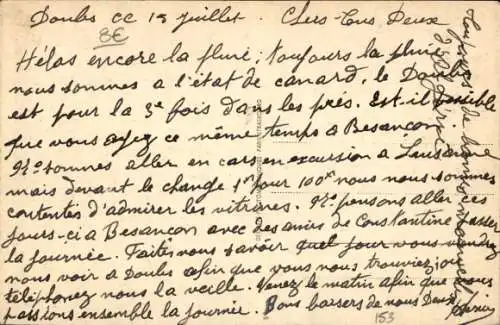 Doubs ce 15 juillet. Chers Tous Deux
8€
Hélas encore la pluie ; toujours la pluie
nous sommes a l'état de canard, le Doubs
est pour la 3e fois dans les prés. Est-il possible
que vous ayez ce même temps a Besancon
sommes aller en cars en excursion a Lausanne
mais devant le change 1 pour 100 nous nous sommes
contentés d'admirer les vitrines. pensons aller ces
jours-ci a Besançon avec des amis de Constantine passer
la journée. Faites nous savoir quel jour vous viendrez
nous voir a Doubs afin que vous nous trouviez, ou
téléphonez nous la veille. Venez le matin afin que nous
passions ensemble la journée. Bons baisers de nous Deux
153